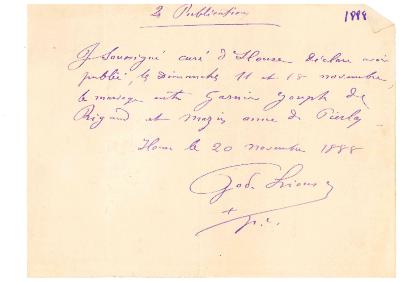 2 Publication
1888
Je Soussigné curé d'Hours déclare avoir
publié, les dimanches 11 et 18 novembre,
le mariage entre Garnier Joseph de
Rigaud et anne de
le 20 novembre 1888